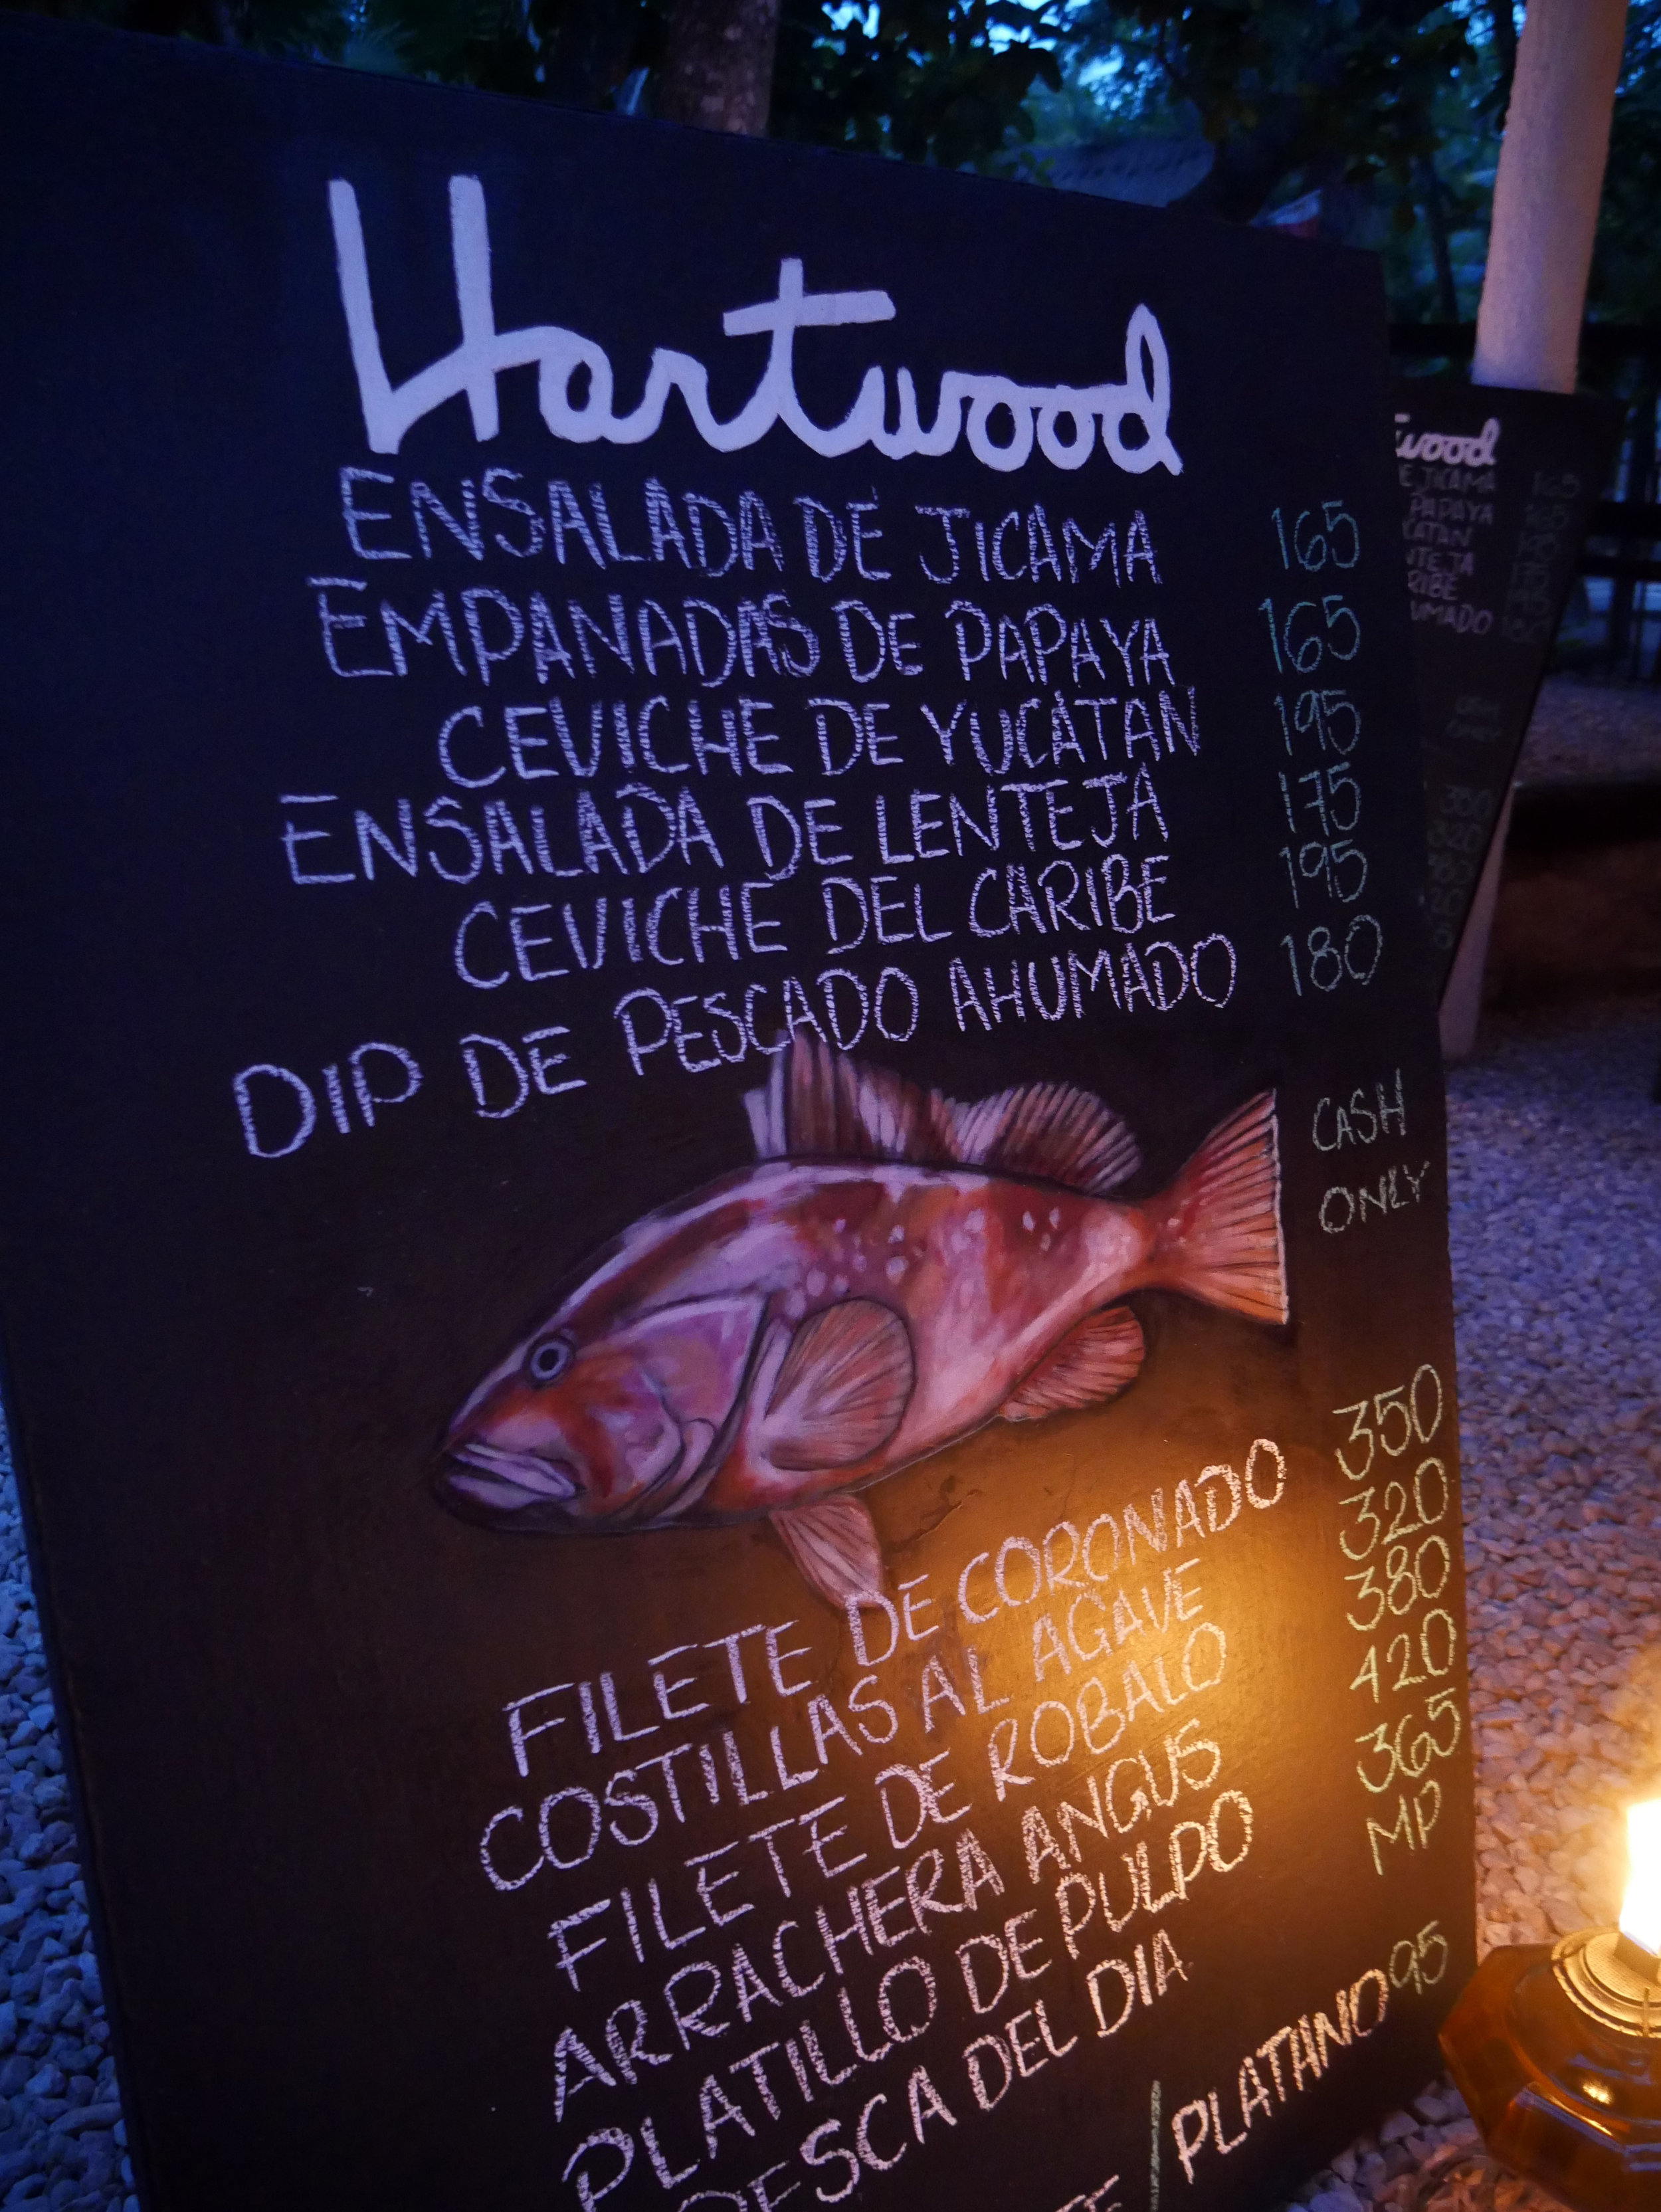 Hartwood
ENSALADA DE JICAMA 165
EMPANADAS DE PAPAYA 165
CEVICHE DE YUCATAN 195
ENSALADA DE LENTEJA 175
CEVICHE DEL CARIBE 195
DIP DE PESCADO AHUMADO 180
CASH
ONLY
FILETE DE CORONADO 350
COSTILLAS AL AGAVE 320
FILETE DE ROBALO 380
ARRACHERA ANGUS 420
PLATILLO DE PULPO 365
PESCA DEL DIA MP
/PLATANO 95
twood
E JICAMA 165
PAPAYA 165
CATAN 195
NTEJA 175
RIBE 195
UMADO 180